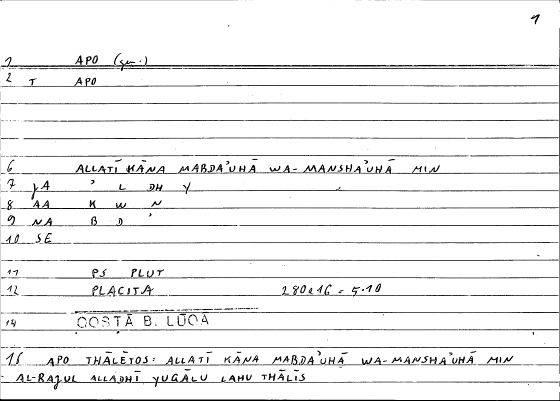 1
1 APO (gen.)
2 T APO
6 ALLATĪ KĀNA MABDAʾUHĀ WA-MANSHAʾUHĀ MIN
7 yA ʾ L DH Y
8 AA K W N
9 NA B D ʾ
10 SE
11 PS PLUT
12 PLACITA 280a16 = 5.10
14 QOSTĀ B. LŪQĀ
15 APO THĀLĒTOS: ALLATĪ KĀNA MABDAʾUHĀ WA-MANSHAʾUHĀ MIN
AL-RAJUL ALLADHĪ YUQĀLU LAHU THĀLĪS